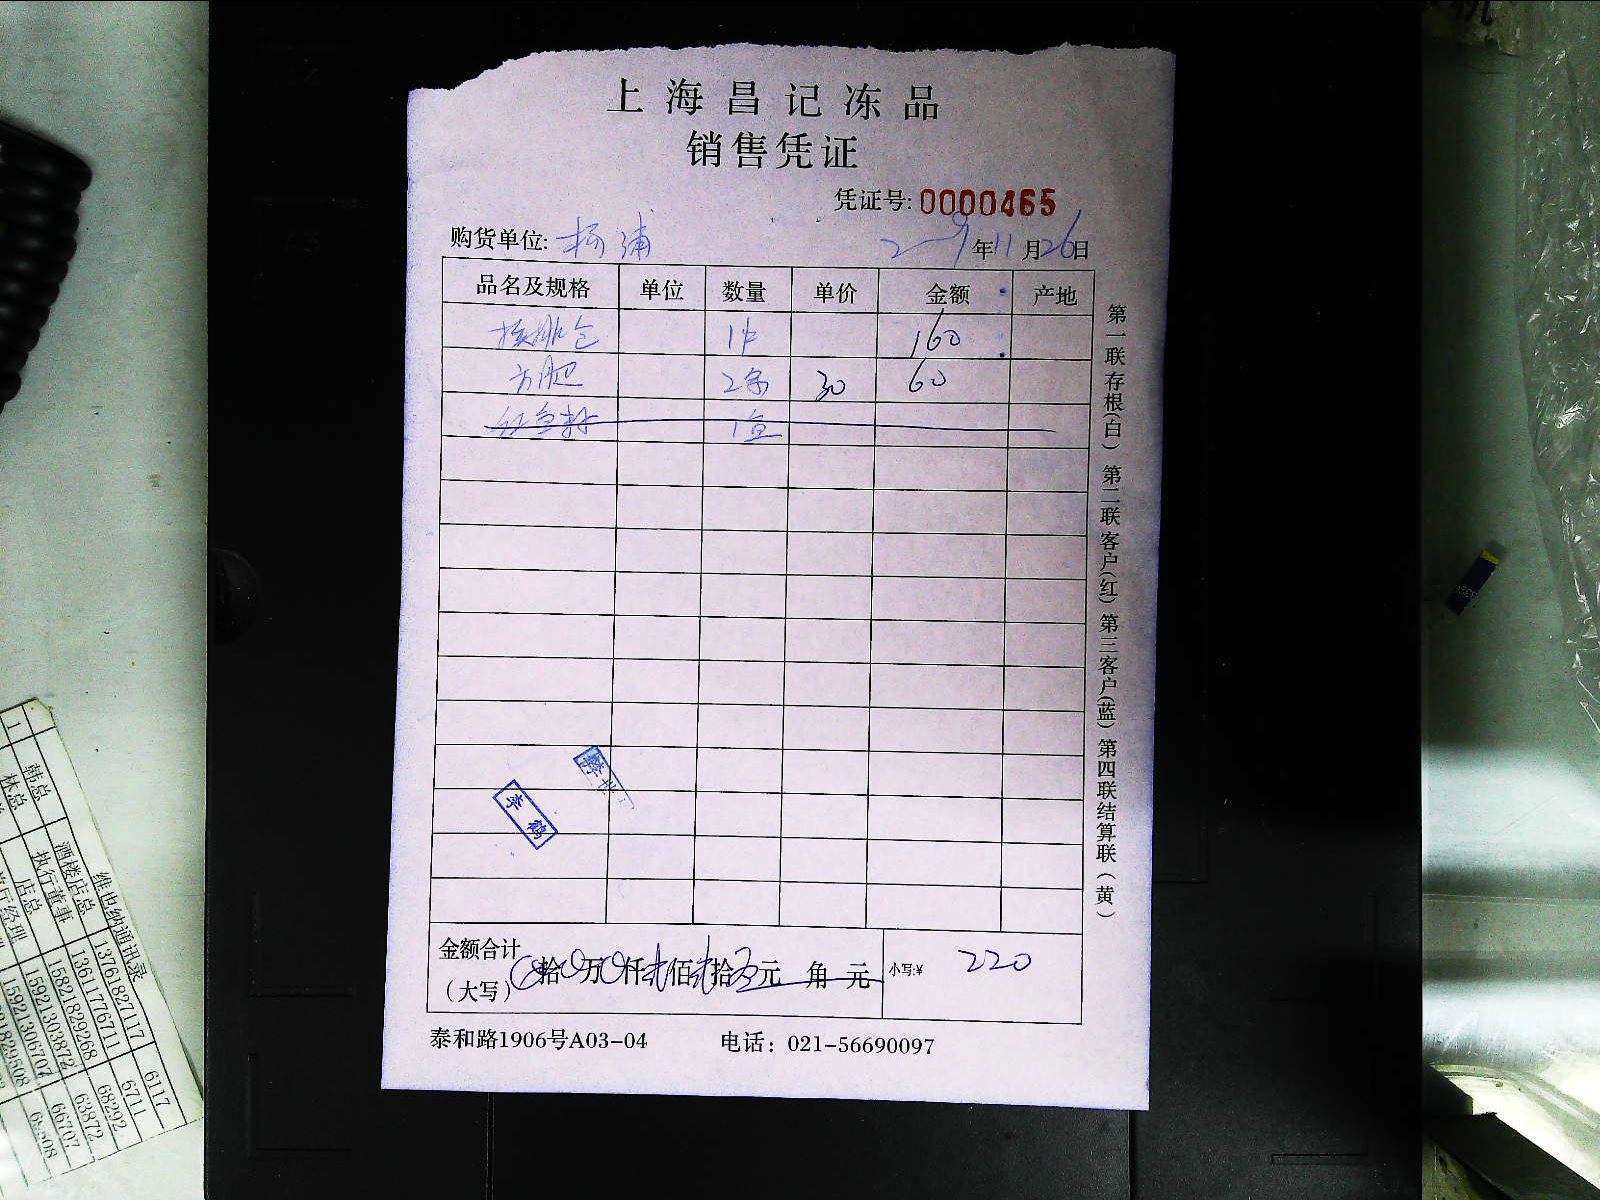 上海昌记冻品
销售凭证
凭证号: 0000465
购货单位: 杨浦 2009年11月26日
品名及规格 单位 数量 单价 金额 产地
1件 160
方肥 2条 30 60
1盒
李鹤
金额合计（大写） 拾 万 仟 贰佰 贰拾 元 角 元 小写:¥ 220
泰和路1906号A03-04 电话：021-56690097
第一联存根(白) 第二联客户(红) 第三客户(蓝) 第四联结算联（黄）
维也纳通讯录
1 韩总 酒楼店总 13761827117 6117
林总 执行董事 13611776711 6711
店总 15821829268 68292
15921303872 63872
15921306707 66707